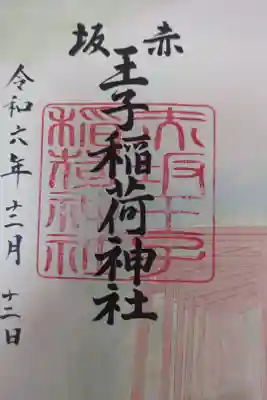 赤坂
王子稲荷神社
令和六年十二月十二日
赤坂王子
稲荷神社